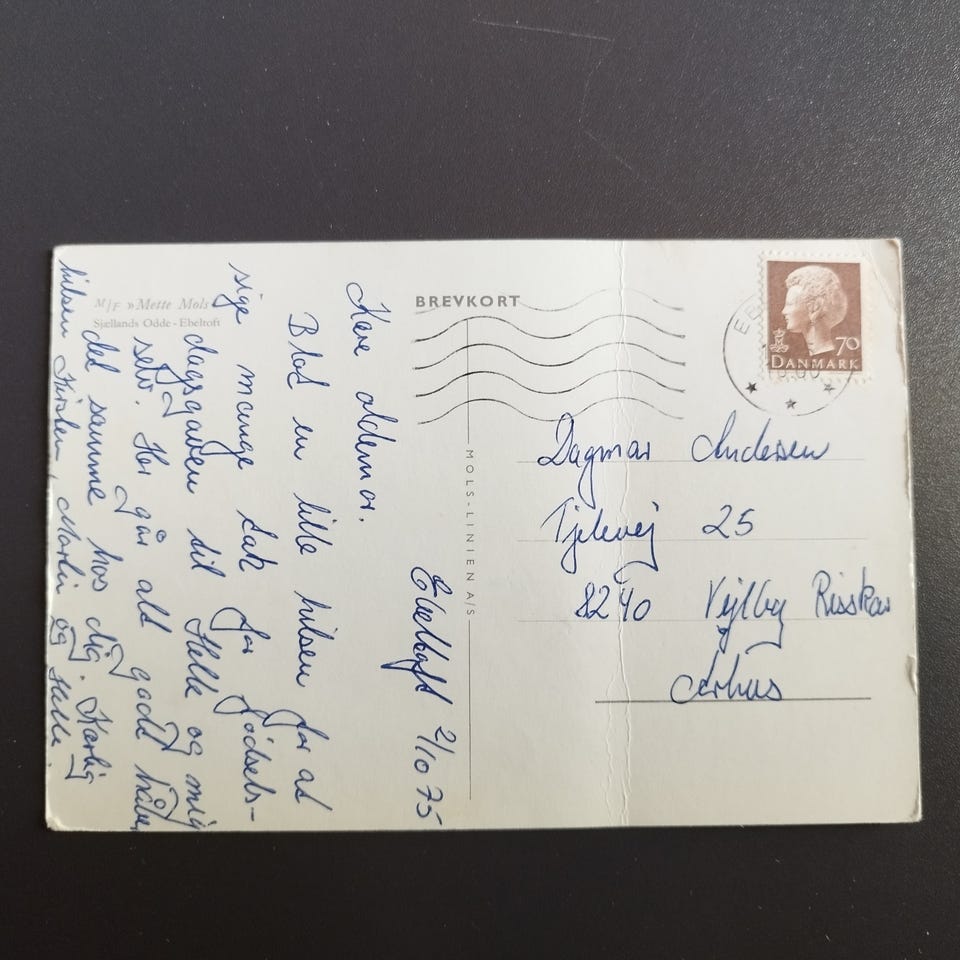 M/F »Mette Mols
Sjællands Odde - Ebeltoft
BREVKORT
MOLS-LINIEN A/S
70
DANMARK
Ebeltoft 2/10 75
Kære oldemor.
Blot en lille hilsen for at
sige mange tak for fødsels-
dagsgaven til Helle og mig
selv. Her går alt godt håber
det samme hos dig. Kærlig
hilsen Kirsten, Martin og Helle.
Dagmar Andersen
Tjelevej 25
8240 Vejlby Risskov
Århus